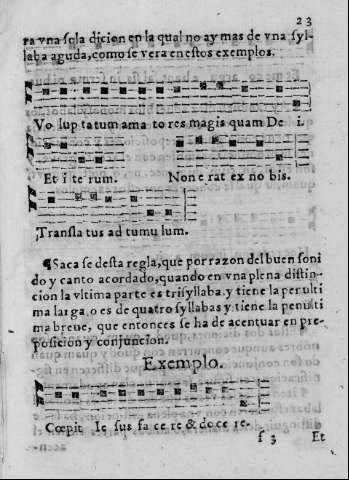 23
ra vna sola dicion en la qual no ay mas de vna syl-
laba aguda, como se vera en estos exemplos.
Vo lup tatum ama to res magis quam De i.
Et i te rum. Non e rat ex no bis.
Transla tus ad tumu lum.
¶Saca se desta regla, que por razon del buen soni
do y canto acordado, quando en vna plena distin-
cion la vltima parte es trisyllaba. y tiene la penulti
ma larga, o es de quatro syllabas y tiene la penulti
ma breue, que entonces se ha de acentuar en pre-
posicion y conjuncion.
Exemplo.
Cœpit Ie sus fa ce re & do ce re-
f 3 Et